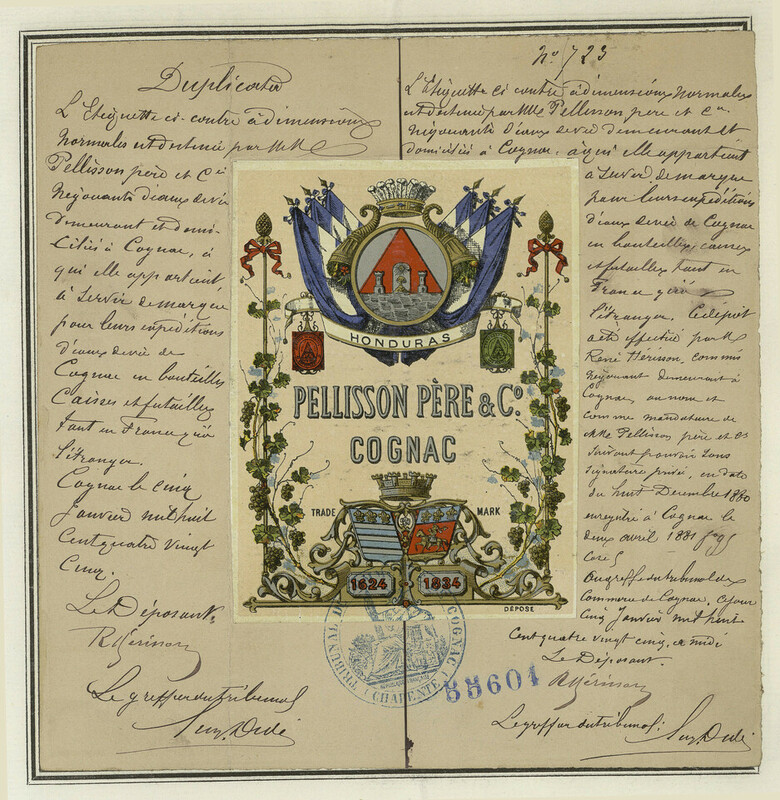 Duplicata
L'Etiquette ci-contre à dimensions
normales est destinée par MM
Pellisson père et Cie
négociants d'eaux de vie
demeurant et domi-
ciliés à Cognac, à
qui elle appartient,
à servir de marque
pour leurs expéditions
d'eaux de vie de
Cognac en bouteilles
Caisses et futailles
tant en France qu'à
l'étranger.
Cognac le cinq
Janvier mil huit
cent quatre vingt
cinq.
Le Déposant,
R Hérisson
Le greffier du tribunal
No 725
L'Etiquette ci contre à dimensions normales
est destinée par MM Pellisson père et Cie
négociants d'eaux de vie demeurant et
domiciliés à Cognac, à qui elle appartient
à servir de marque
pour leurs expéditions
d'eaux de vie de Cognac
en bouteilles, caisses
et futailles tant en
France qu'à
l'étranger. Ce dépôt
a été effectué par M
René Hérisson, commis
négociant demeurant à
Cognac, au nom et
comme mandataire de
MM Pellisson père et Cie
suivant pouvoir sous
signature privée, en date
du huit Décembre 1880
enregistré à Cognac le
deux avril 1881
au greffe du tribunal de
Commerce de Cognac, ce jour
cinq Janvier mil huit
cent quatre vingt cinq, à midi
Le Déposant.
R Hérisson
Le greffier du tribunal
HONDURAS
PELLISSON PÈRE & Co.
COGNAC
TRADE MARK
1624 1834
DÉPOSÉ
TRIBUNAL DE COGNAC
(CHARENTE)
88601